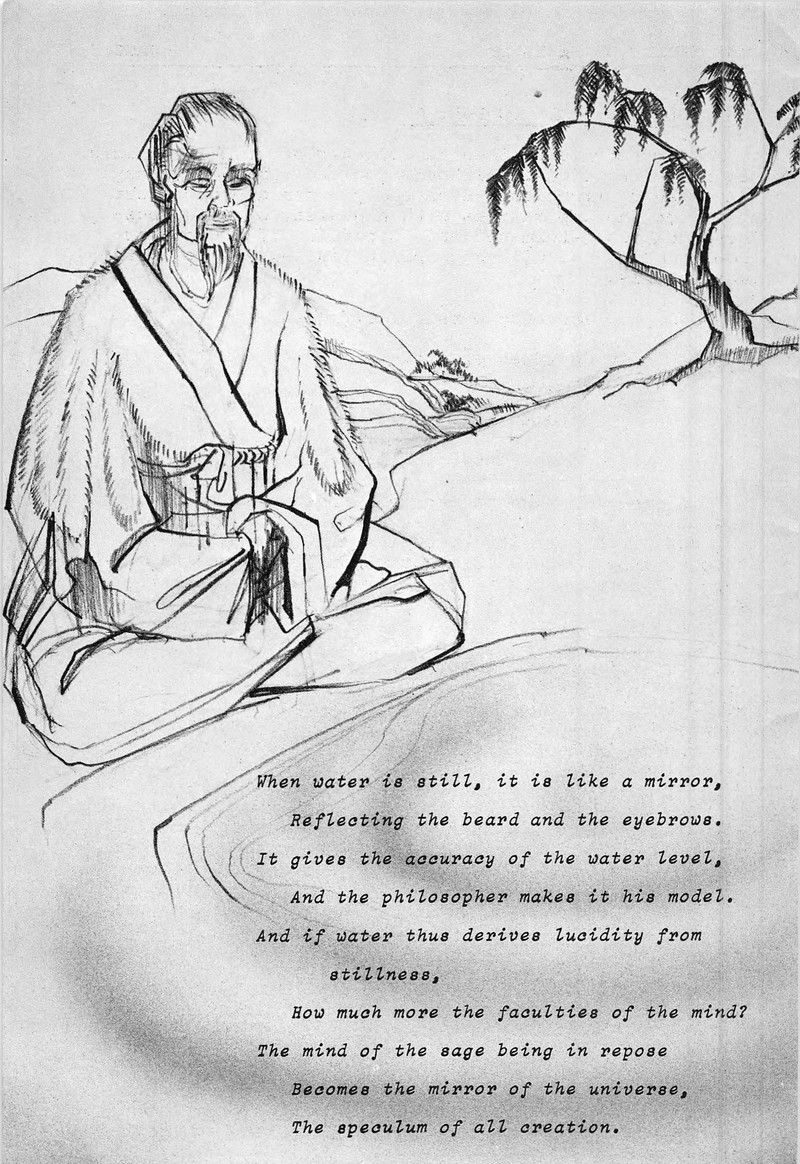 When water is still, it is like a mirror,
Reflecting the beard and the eyebrows.
It gives the accuracy of the water level,
And the philosopher makes it his model.
And if water thus derives lucidity from
stillness,
How much more the faculties of the mind?
The mind of the sage being in repose
Becomes the mirror of the universe,
The speculum of all creation.